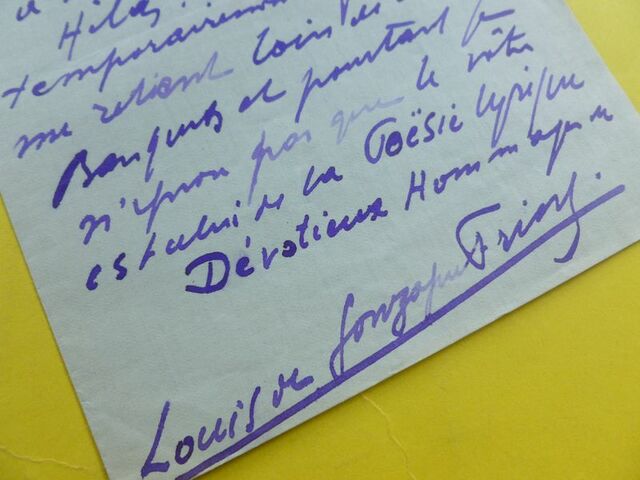 Hélas!
temporairement
me retient loin des
Banquets et pourtant je
n'ignore pas que le vôtre
est celui de la Poësie lyrique
Dévotieux Hommages
Louis de Gonzague Frick.